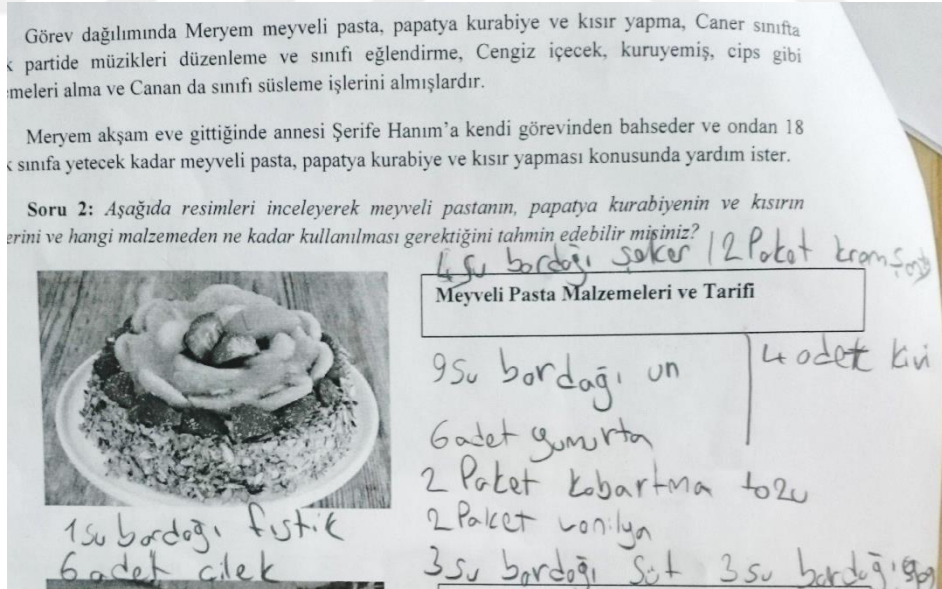 Görev dağılımında Meryem meyveli pasta, papatya kurabiye ve kısır yapma, Caner sınıfta
k partide müzikleri düzenleme ve sınıfı eğlendirme, Cengiz içecek, kuruyemiş, cips gibi
meleri alma ve Canan da sınıfı süsleme işlerini almışlardır.
Meryem akşam eve gittiğinde annesi Şerife Hanım'a kendi görevinden bahseder ve ondan 18
k sınıfa yetecek kadar meyveli pasta, papatya kurabiye ve kısır yapması konusunda yardım ister.
Soru 2: Aşağıda resimleri inceleyerek meyveli pastanın, papatya kurabiyenin ve kısırın
erini ve hangi malzemeden ne kadar kullanılması gerektiğini tahmin edebilir misiniz?
4 su bardağı şeker | 2 Paket krem
Meyveli Pasta Malzemeleri ve Tarifi
9 Su bardağı un
4 adet kivi
6 adet yumurta
2 Paket kabartma tozu
2 Paket vanilya
3 su bardağı süt 3 su bardağı
1 su bardağı fıstık
6 adet çilek